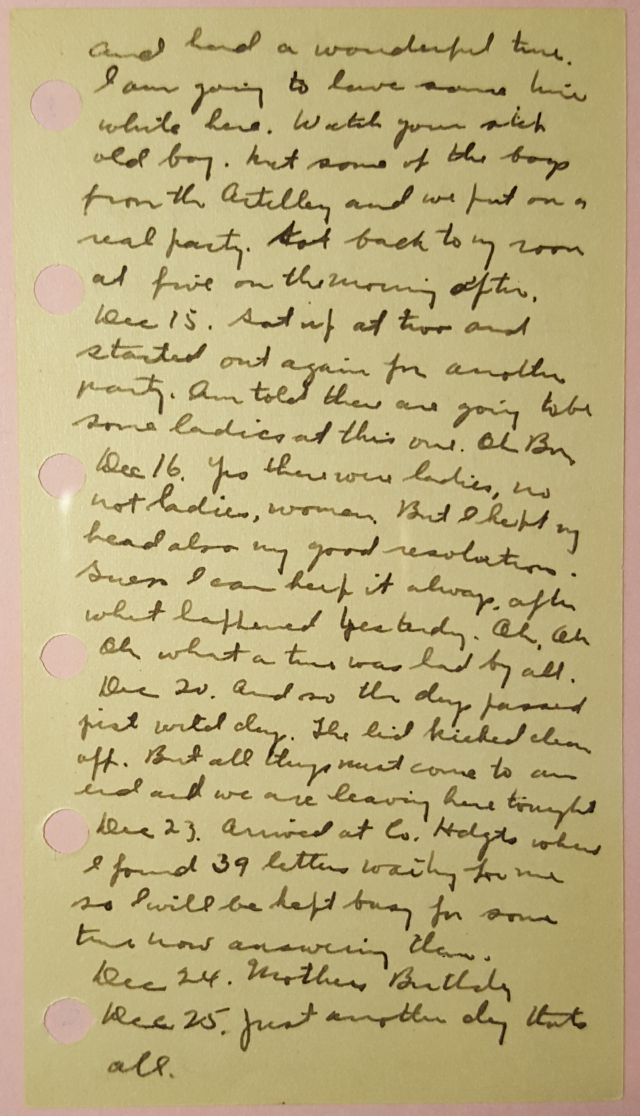 and had a wonderful time.
I am going to have some time
while here. Watch your step
old boy. Met some of the boys
from the Artillery and we put on a
real party. Got back to my room
at five on the morning after.
Dec 15. Sat up at two and
started out again for another
party. Am told there are going to be
some ladies at this one. Oh Boy
Dec 16. Yes there were ladies, no
not ladies, women. But I kept my
head also my good resolution.
Guess I can keep it always, after
what happened yesterday. Oh, Oh
Oh what a time was had by all.
Dec 20. And so the days passed
just wild days. The lid kicked clean
off. But all things must come to an
end and we are leaving here tonight
Dec 23. Arrived at Co. Hdqts where
I found 39 letters waiting for me
so I will be kept busy for some
time now answering them.
Dec 24. Mothers Birthday
Dec 25. Just another day thats
all.